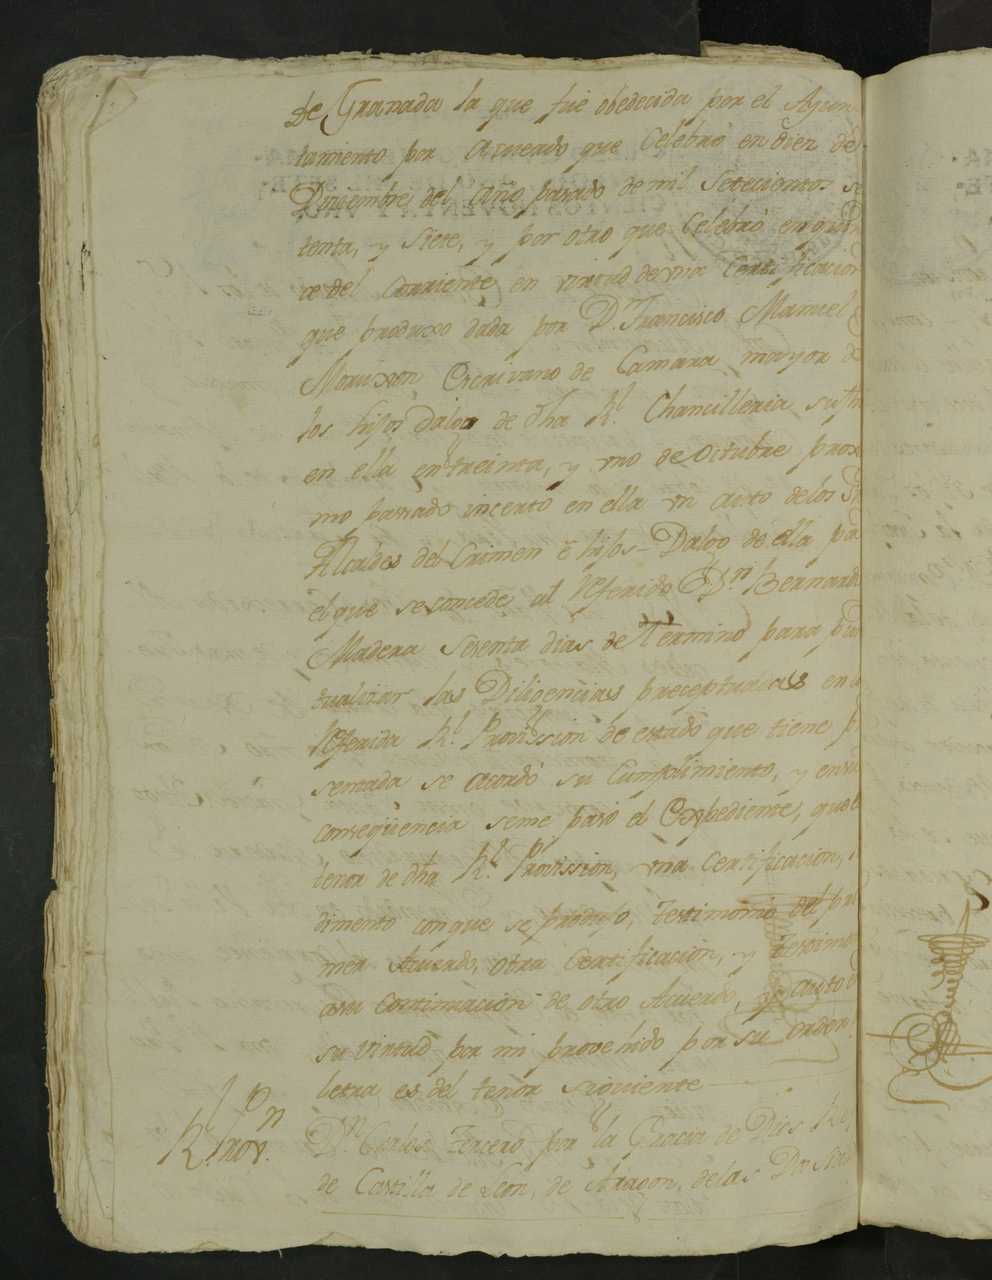 de Granada la que fue obedecida por el Ayun
tamiento por Acuerdo que Celebró en diez de
Diciembre del año pasado de mil Setecientos se
tenta, y Siete, y por otro que Celebró en quin
ce del Corriente en virtud de vna Certificacion
que produxo dada por Dn. Francisco Manuel
Escrivano de Camara mayor de
los hijos Dalgo de dha Rl. Chancilleria su fha
en ella en treinta, y vno de Octubre proxi
mo pasado incerto en ella vn auto de los Sres
Alcaldes del Crimen é hijos-Dalgo de ella por
el que se concede al Referido Dn. Bernardo
Madera Sesenta dias de Termino para pun
tualizar las Diligencias preceptuadas en la
Referida Rl. Provission de estado que tiene pre
sentada se acordó su Cumplimiento, y en su
conseqüencia seme pasó el Expediente, que el
tenor de dha Rl. Provission, vna Certificacion,
dimento conque se produjo, Testimonio del pri
mer Acuerdo, otra Certificacion, y testimo
asu Continuacion de otro Acuerdo, y auto
su virtud por mi provehido por su orden
letra es del tenor siguiente
Rl. Pon
Dn. Carlos Tercero por la Gracia de Dios Rey
de Castilla de Leon, de Aragon, de las Dos Sici